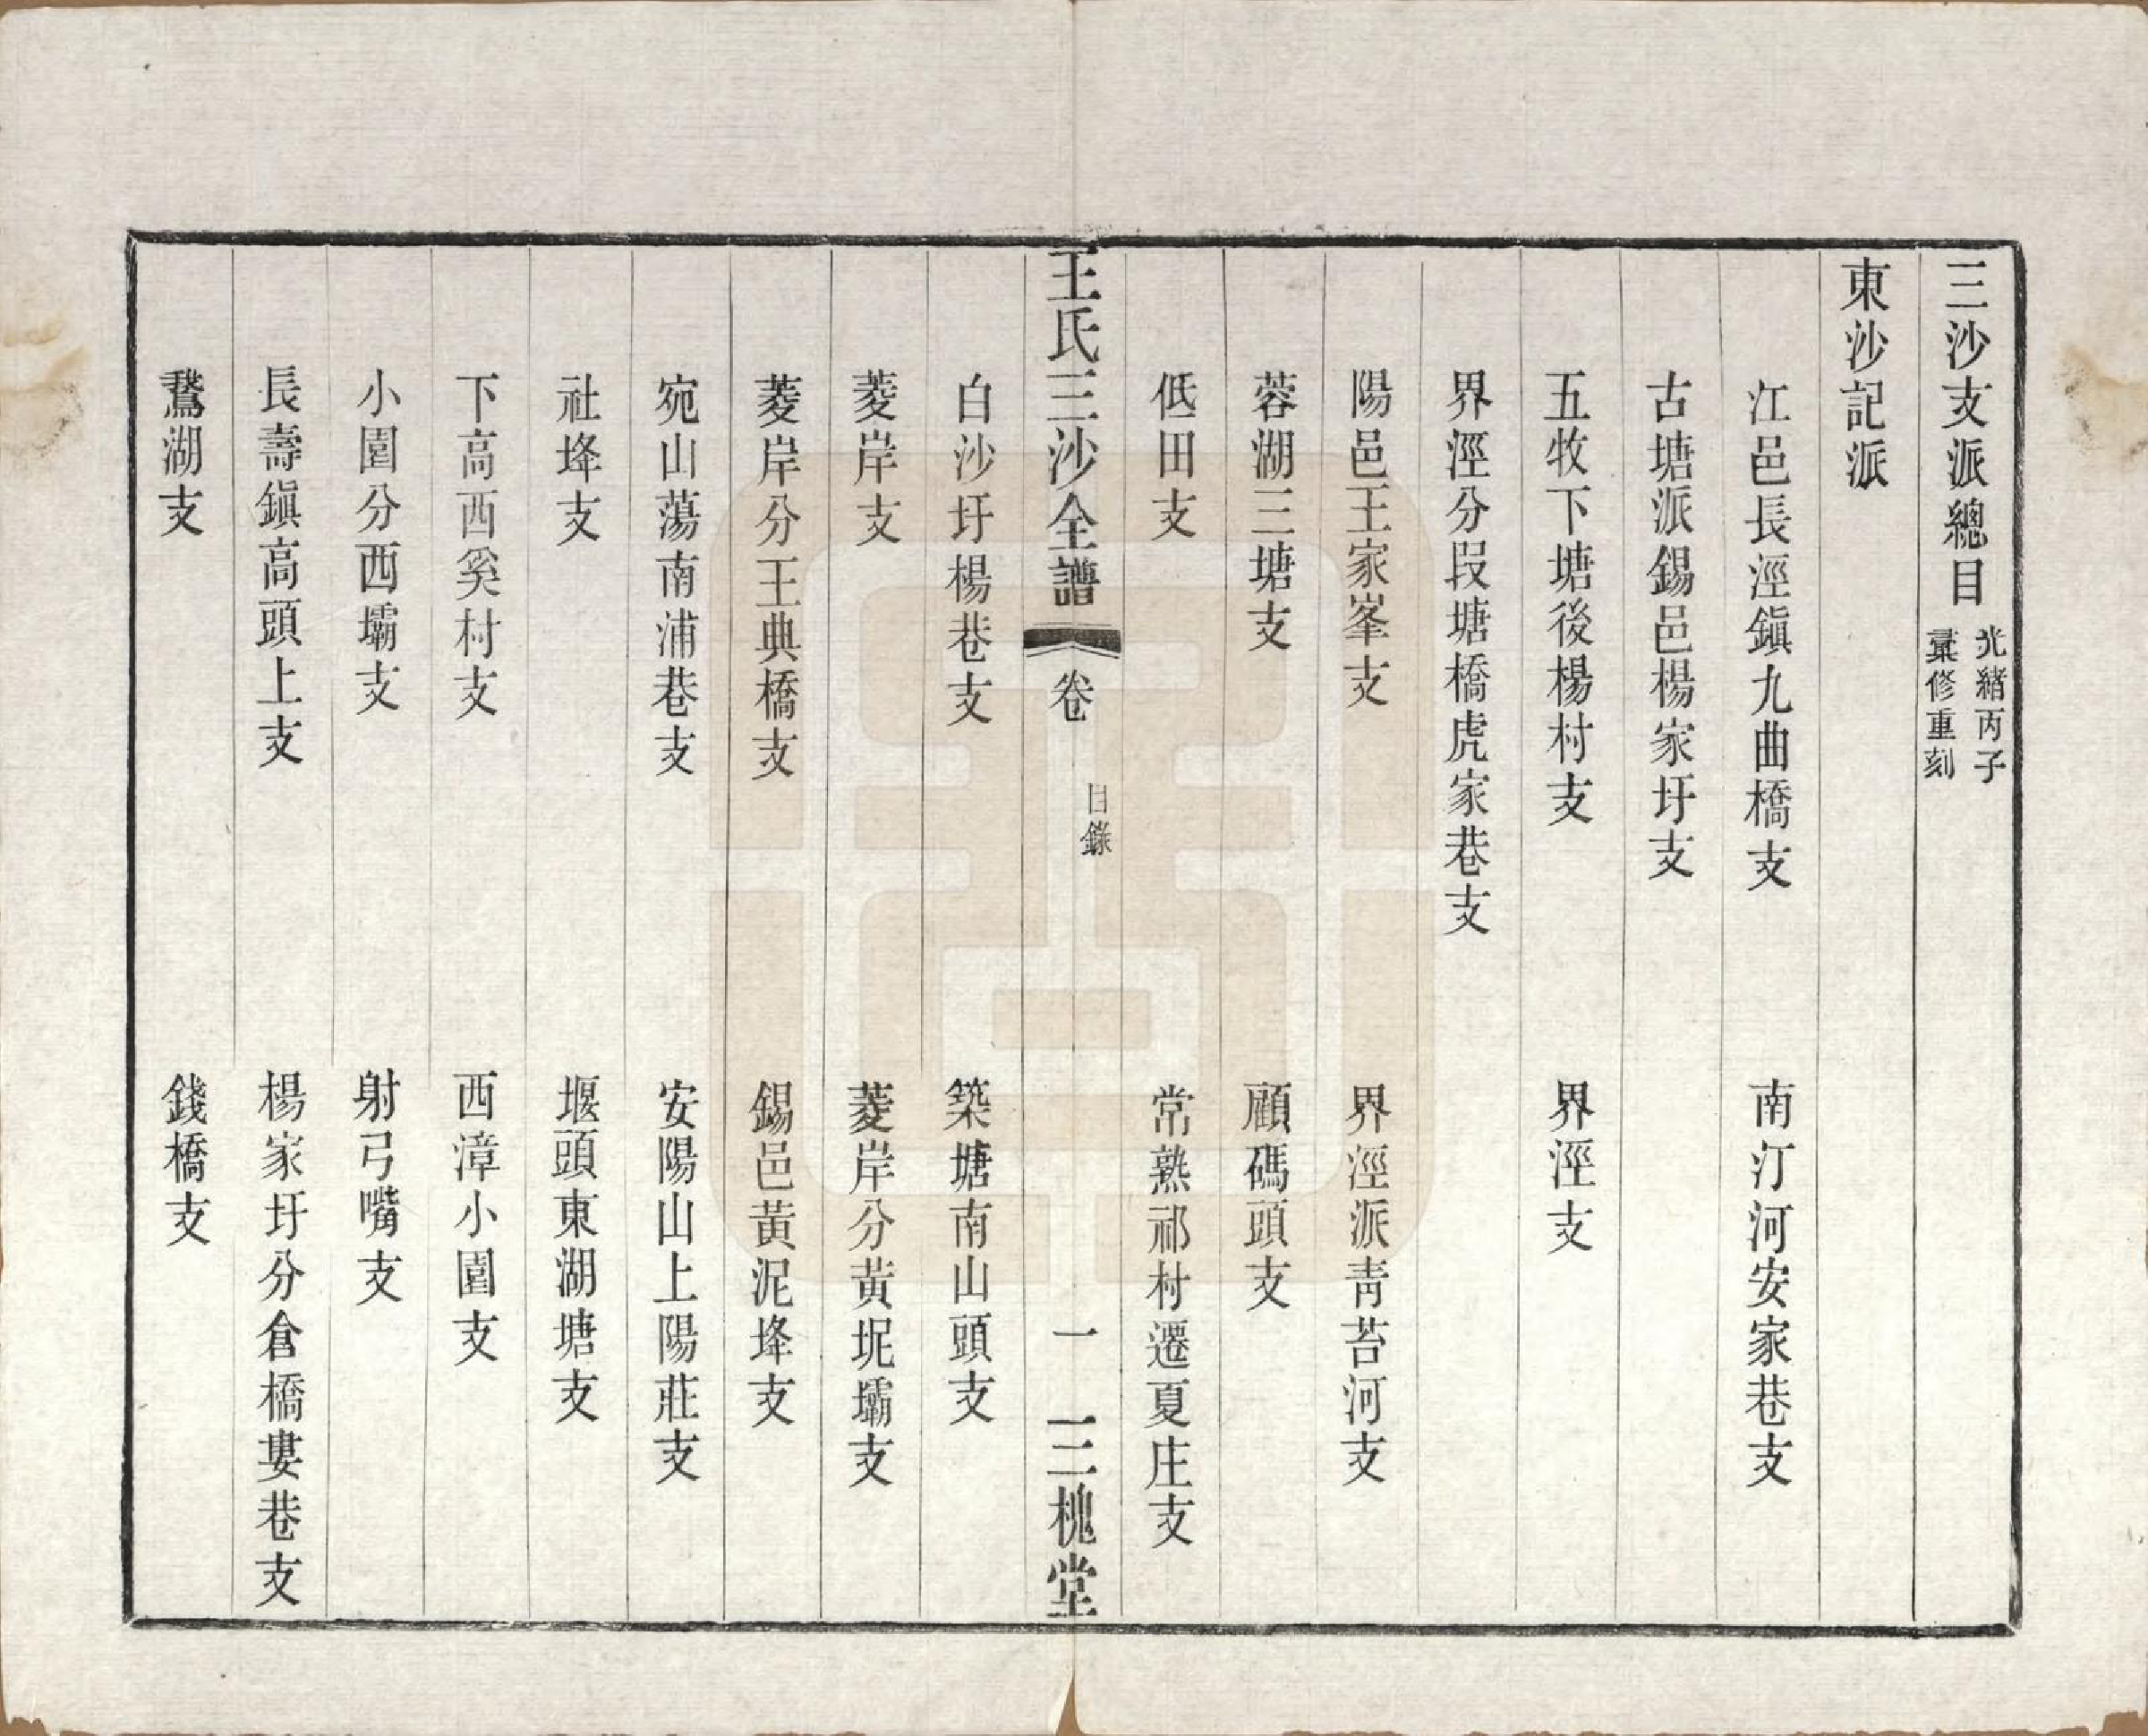 三沙支派總目
光緒丙子
彚修重刻
東沙記派
江邑長涇鎭九曲橋支
南汀河安家巷支
古塘派錫邑楊家圩支
五牧下塘後楊村支
界涇支
界涇分段塘橋虎家巷支
陽邑王家峯支
界涇派靑苔河支
蓉湖三塘支
顧碼頭支
低田支
常熟祁村遷夏庄支
王氏三沙全譜
卷
目錄
一
三槐堂
白沙圩楊巷支
築塘南山頭支
菱岸支
菱岸分黃坭壩支
菱岸分王典橋支
錫邑黃泥埄支
宛山蕩南浦巷支
安陽山上陽莊支
社埄支
堰頭東湖塘支
下高西奚村支
西漳小園支
小園分西壩支
射弓嘴支
長壽鎭高頭上支
楊家圩分倉橋婁巷支
鵞湖支
錢橋支